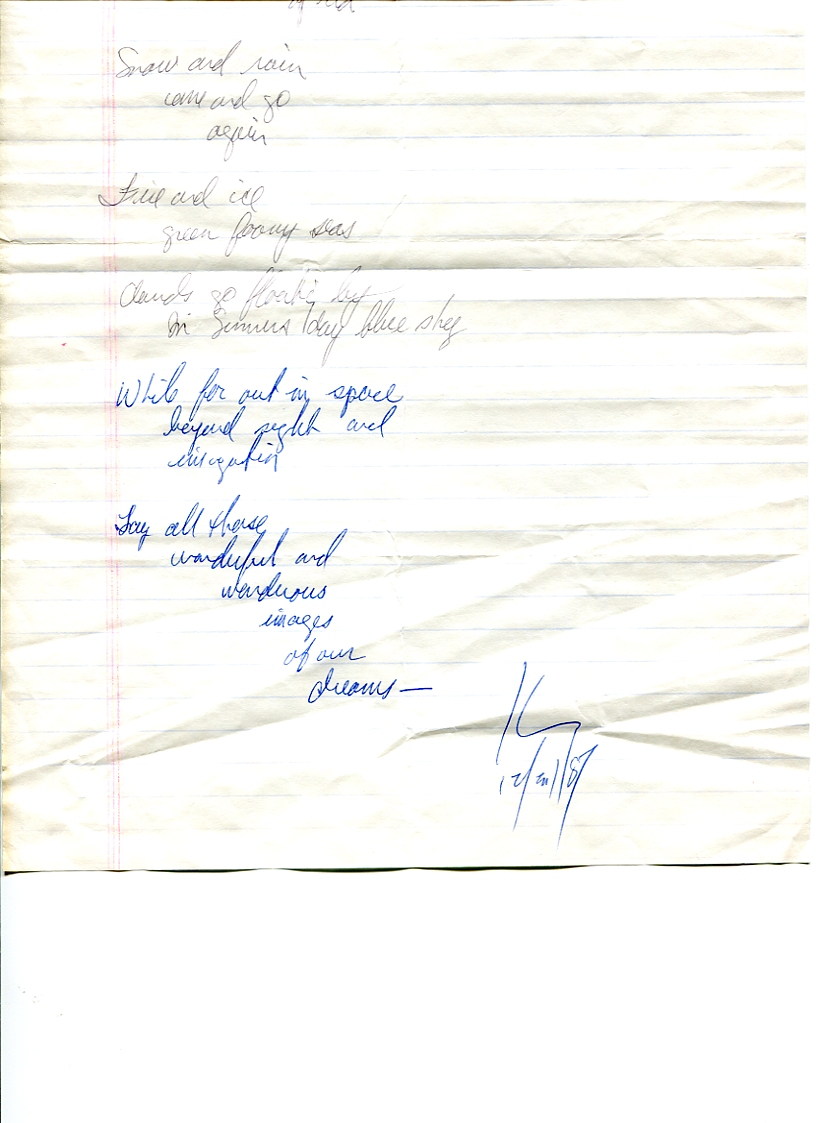 of red
Snow and rain
come and go
again
Fire and ice
green foamy seas
Clouds go floatig by
In Summers day blue sky
While far out in space
beyond sight and
imagination
Lay all these
wonderful and
wonderous
images
of our
dreams—
12/20/87